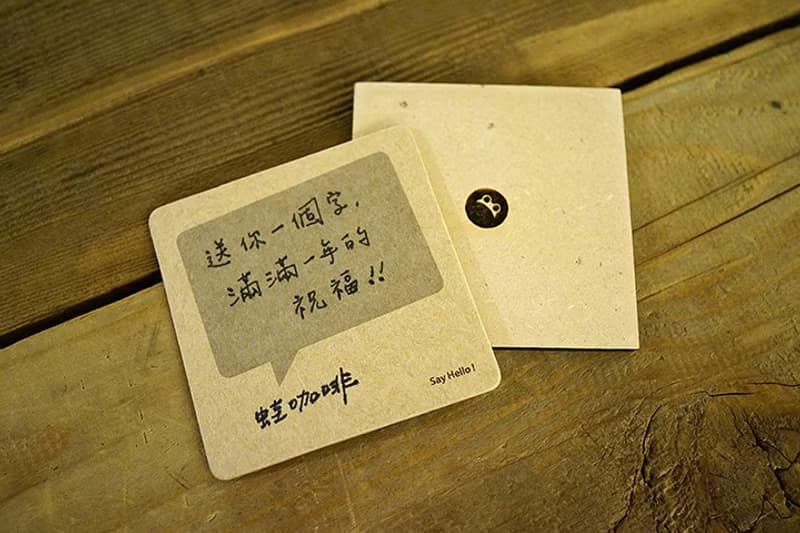 送你一個字,
滿滿一年的
祝福!!
蛙咖啡
Say Hello!